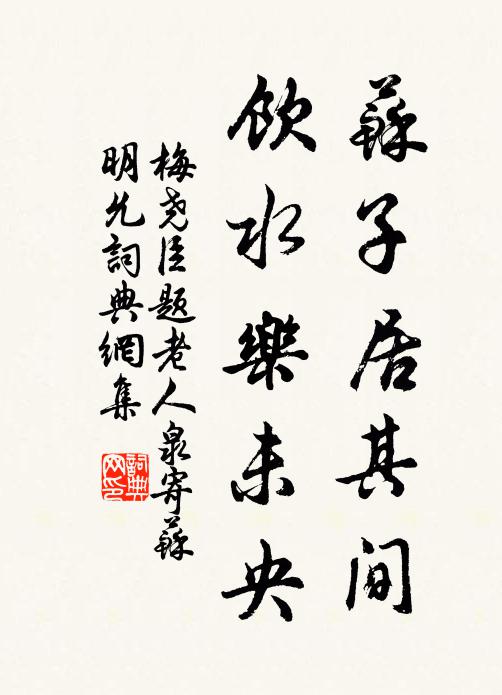 蘇子居其間
飲水樂未央
梅堯臣題老人泉寄蘇
明允詞典網集
詞典
网印